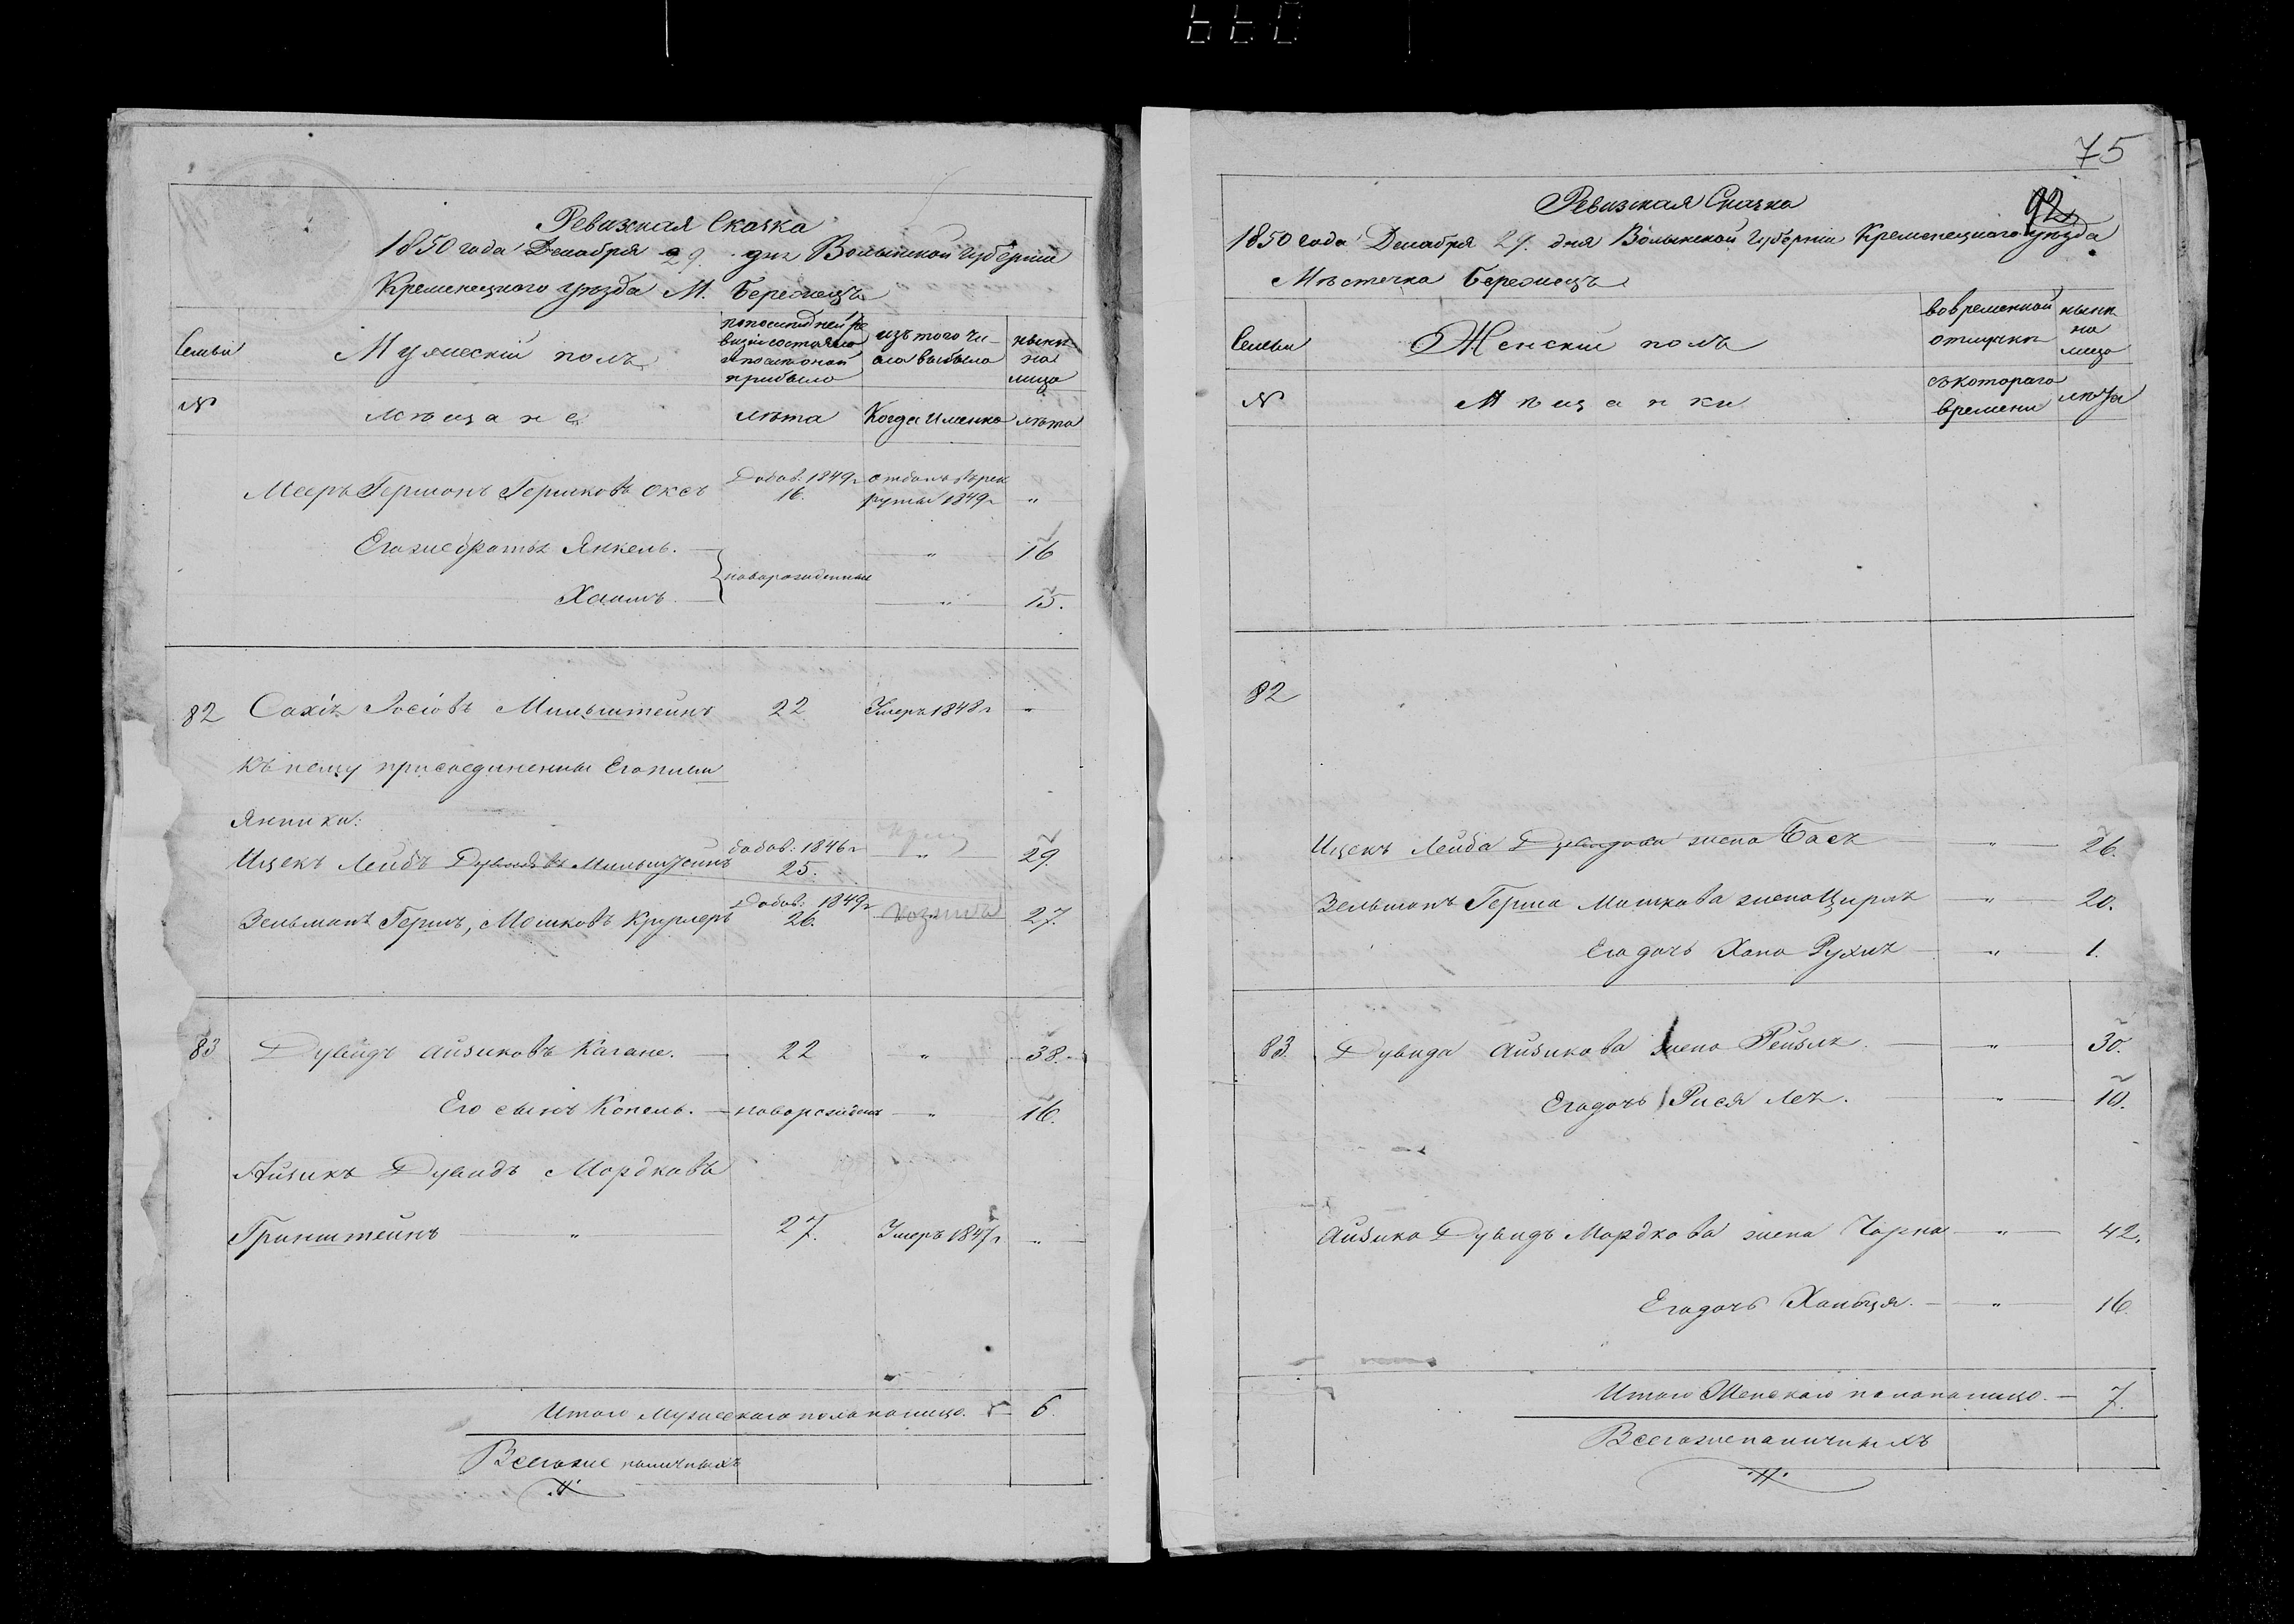 Ревизская Сказка
1850 года Декабря 29. дня Волынской Губернии
Кременецкаго уѣзда М. Бережецъ
Семьи
Мужескій полъ
по последней ре
визіи состояло
и после оной
прибыло
изъ того чи-
сла выбыло
нынѣ
на
лицо
№
мѣщане
лѣта
Когда именно
лѣта
Мееръ Гершонъ Гершковъ Оксъ
Добав. 1849 г
16.
отданъ въ рек
руты 1849 г
"
Его же братья Янкель.
"
16
новорожденные
Хаимъ
"
15.
82
Іосіовъ Мильштейнъ
22
Умеръ 1848 г
"
Къ нему присоединенны Его племя
янники:
Ицекъ Лейбъ Дувидовъ Мильштейнъ
добав: 1846 г
25.
"
29.
Зельманъ Гершъ, Мошковъ Крурлеръ
Добав: 1849 г
26.
27.
83
Дувидъ Айзиковъ Кагане.
22
"
38.
Его сынъ Копель.
новорожден
"
16.
Айзикъ Дувидъ Мордковъ
Гринштейнъ
"
27.
Умеръ 1847 г
"
Итого Мужескаго пола на лицо.
6.
Всего же наличныхъ
75
92
Ревизская Сказка
1850 года Декабря 29. дня Волынской Губерніи Кременецкаго уѣзда
Мѣстечка Бережецъ
Семьи
Женскій полъ
во временной
отлучкѣ
нынѣ
на
лицо
№
Мѣщанки
съ котораго
времени
лѣта
82
Ицекъ Лейба Дувидова жена Бася
"
26.
Зельманъ Герша Мошкова жена Цирля
"
20.
Его дочь Хана Рухля
"
1.
83.
Дувида Айзикова жена Рейзля.
"
30.
Его дочь Рися Лея.
"
10.
Айзика Дувидъ Мордкова жена Чарна
"
42.
Его дочь Ханьця.
"
16.
Итого Женскаго пола на лицо.
7.
Всего же наличныхъ